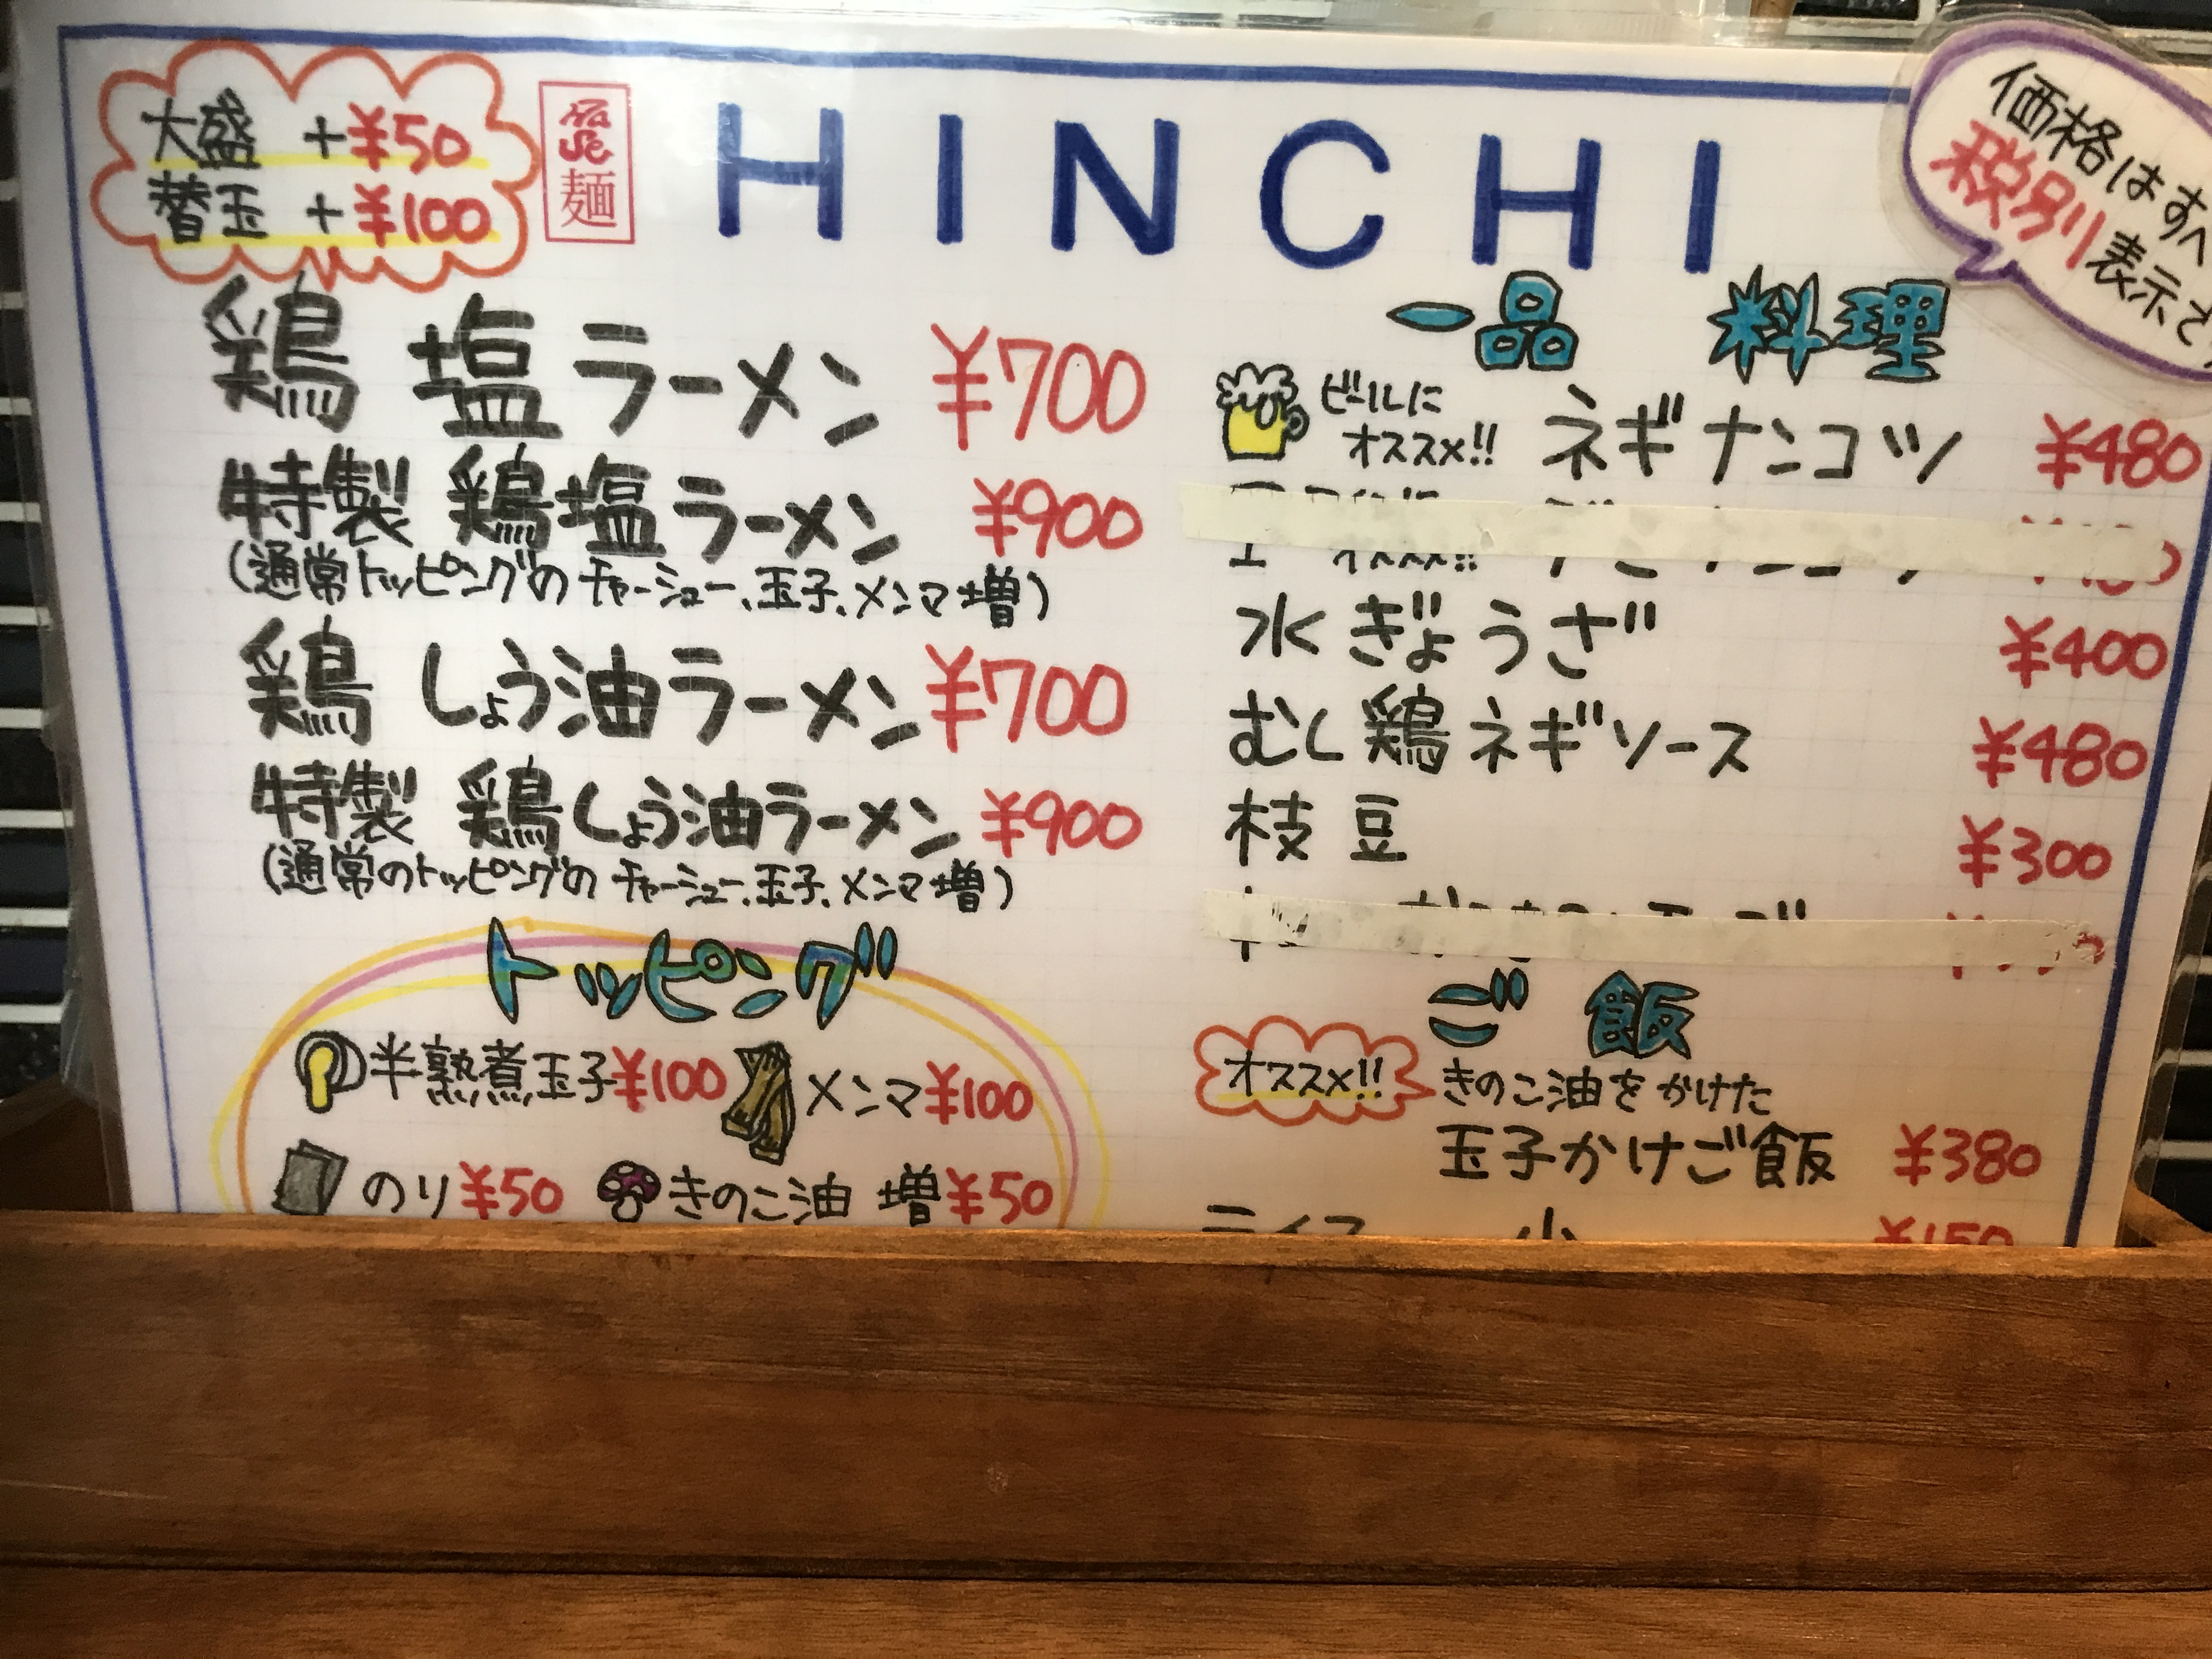 大盛 +¥50
替玉 +¥100
麺
HINCHI
価格はすべ
税別表示さ
鶏 塩ラーメン ¥700
特製 鶏塩ラーメン ¥900
(通常トッピングの チャーシュー、玉子、メンマ増)
鶏 しょう油ラーメン ¥700
特製 鶏しょう油ラーメン ¥900
(通常のトッピングの チャーシュー、玉子、メンマ増)
トッピング
半熟煮玉子 ¥100 メンマ ¥100
のり ¥50 きのこ油 増 ¥50
一品 料理
ビールに
オススメ!! ネギナンコツ ¥480
水ぎょうざ ¥400
むし鶏ネギソース ¥480
枝豆 ¥300
ご飯
オススメ!! きのこ油をかけた
玉子かけご飯 ¥380
ライス 小 ¥150